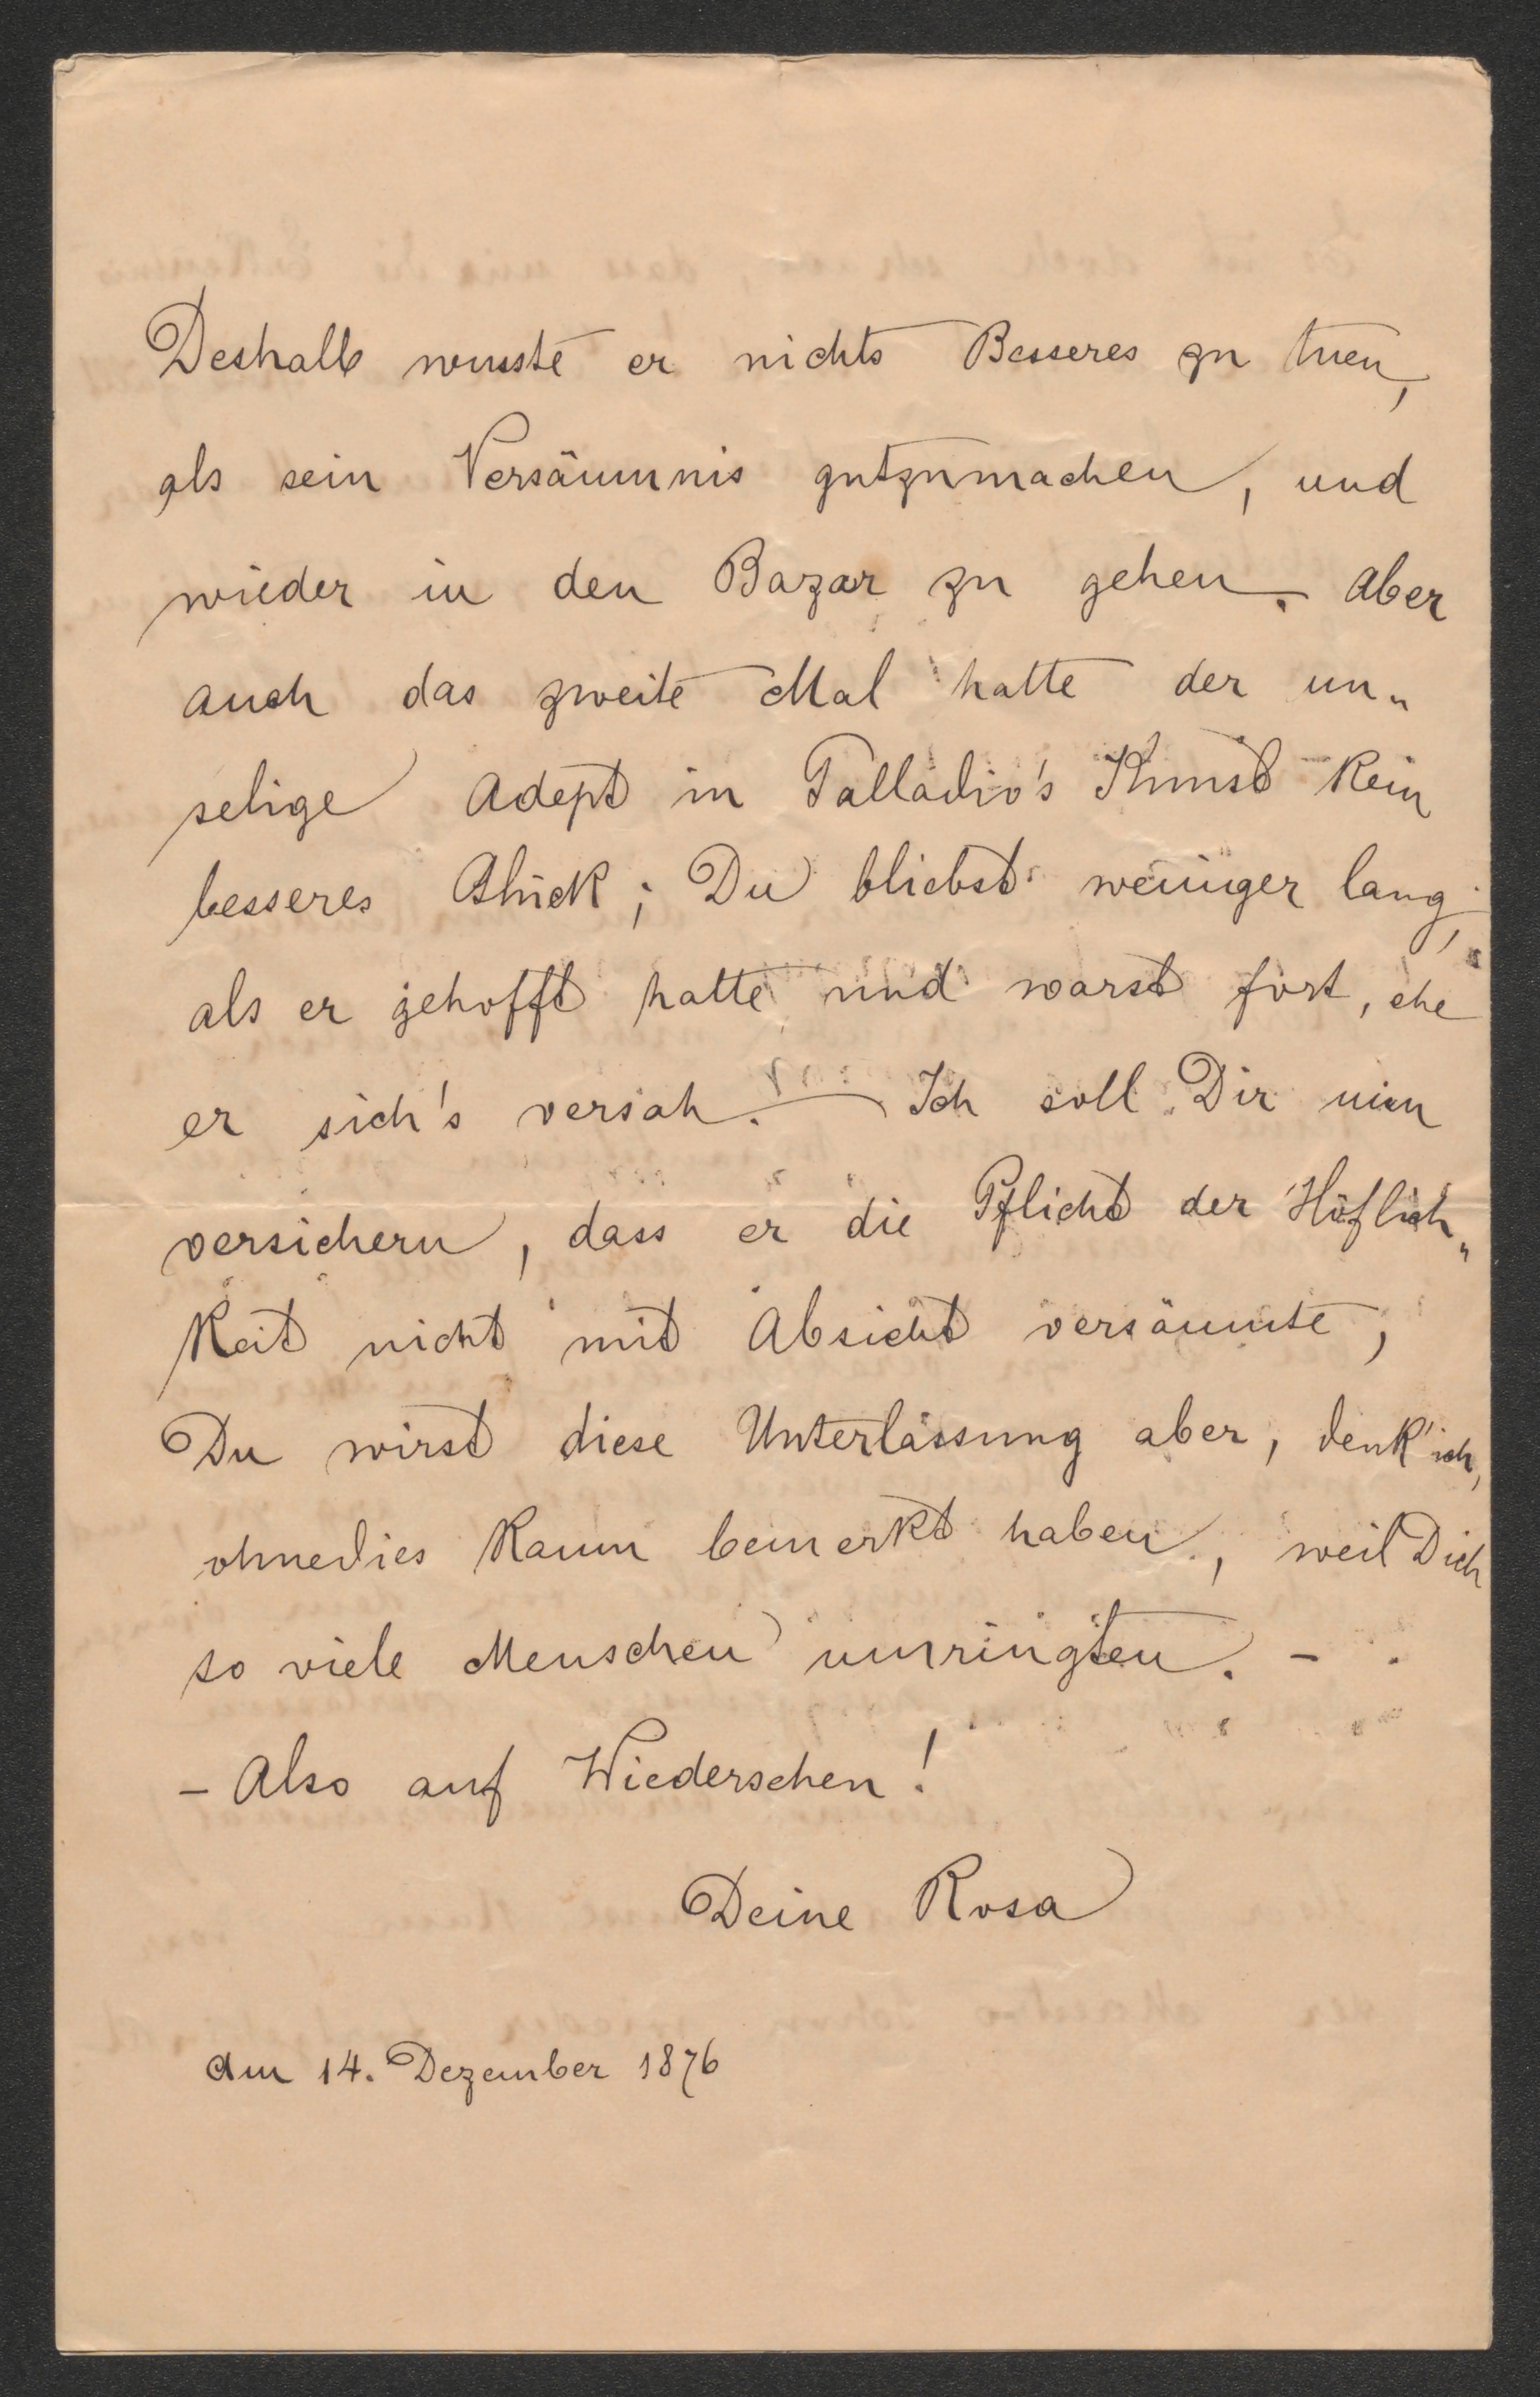 Deshalb wusste er nichts Besseres zu tuen,
als sein Versäumnis gutzumachen, und
wieder in den Bazar zu gehen. Aber
auch das zweite Mal hatte der un„
selige Adept in Palladio's Kunst kein
besseres Glück; Du bliebst weniger lang,
als er gehofft hatte und warst fort, ehe
er sich's versah. — Ich soll Dir nun
versichern, dass er die Pflicht der Höflich„
keit nicht mit Absicht versäumte,
Du wirst diese Unterlassung aber, denk' ich,
ohnedies kaum bemerkt haben, weil Dich
so viele Menschen umringten. –
– Also auf Wiedersehen!
Deine Rosa
Am 14. Dezember 1876